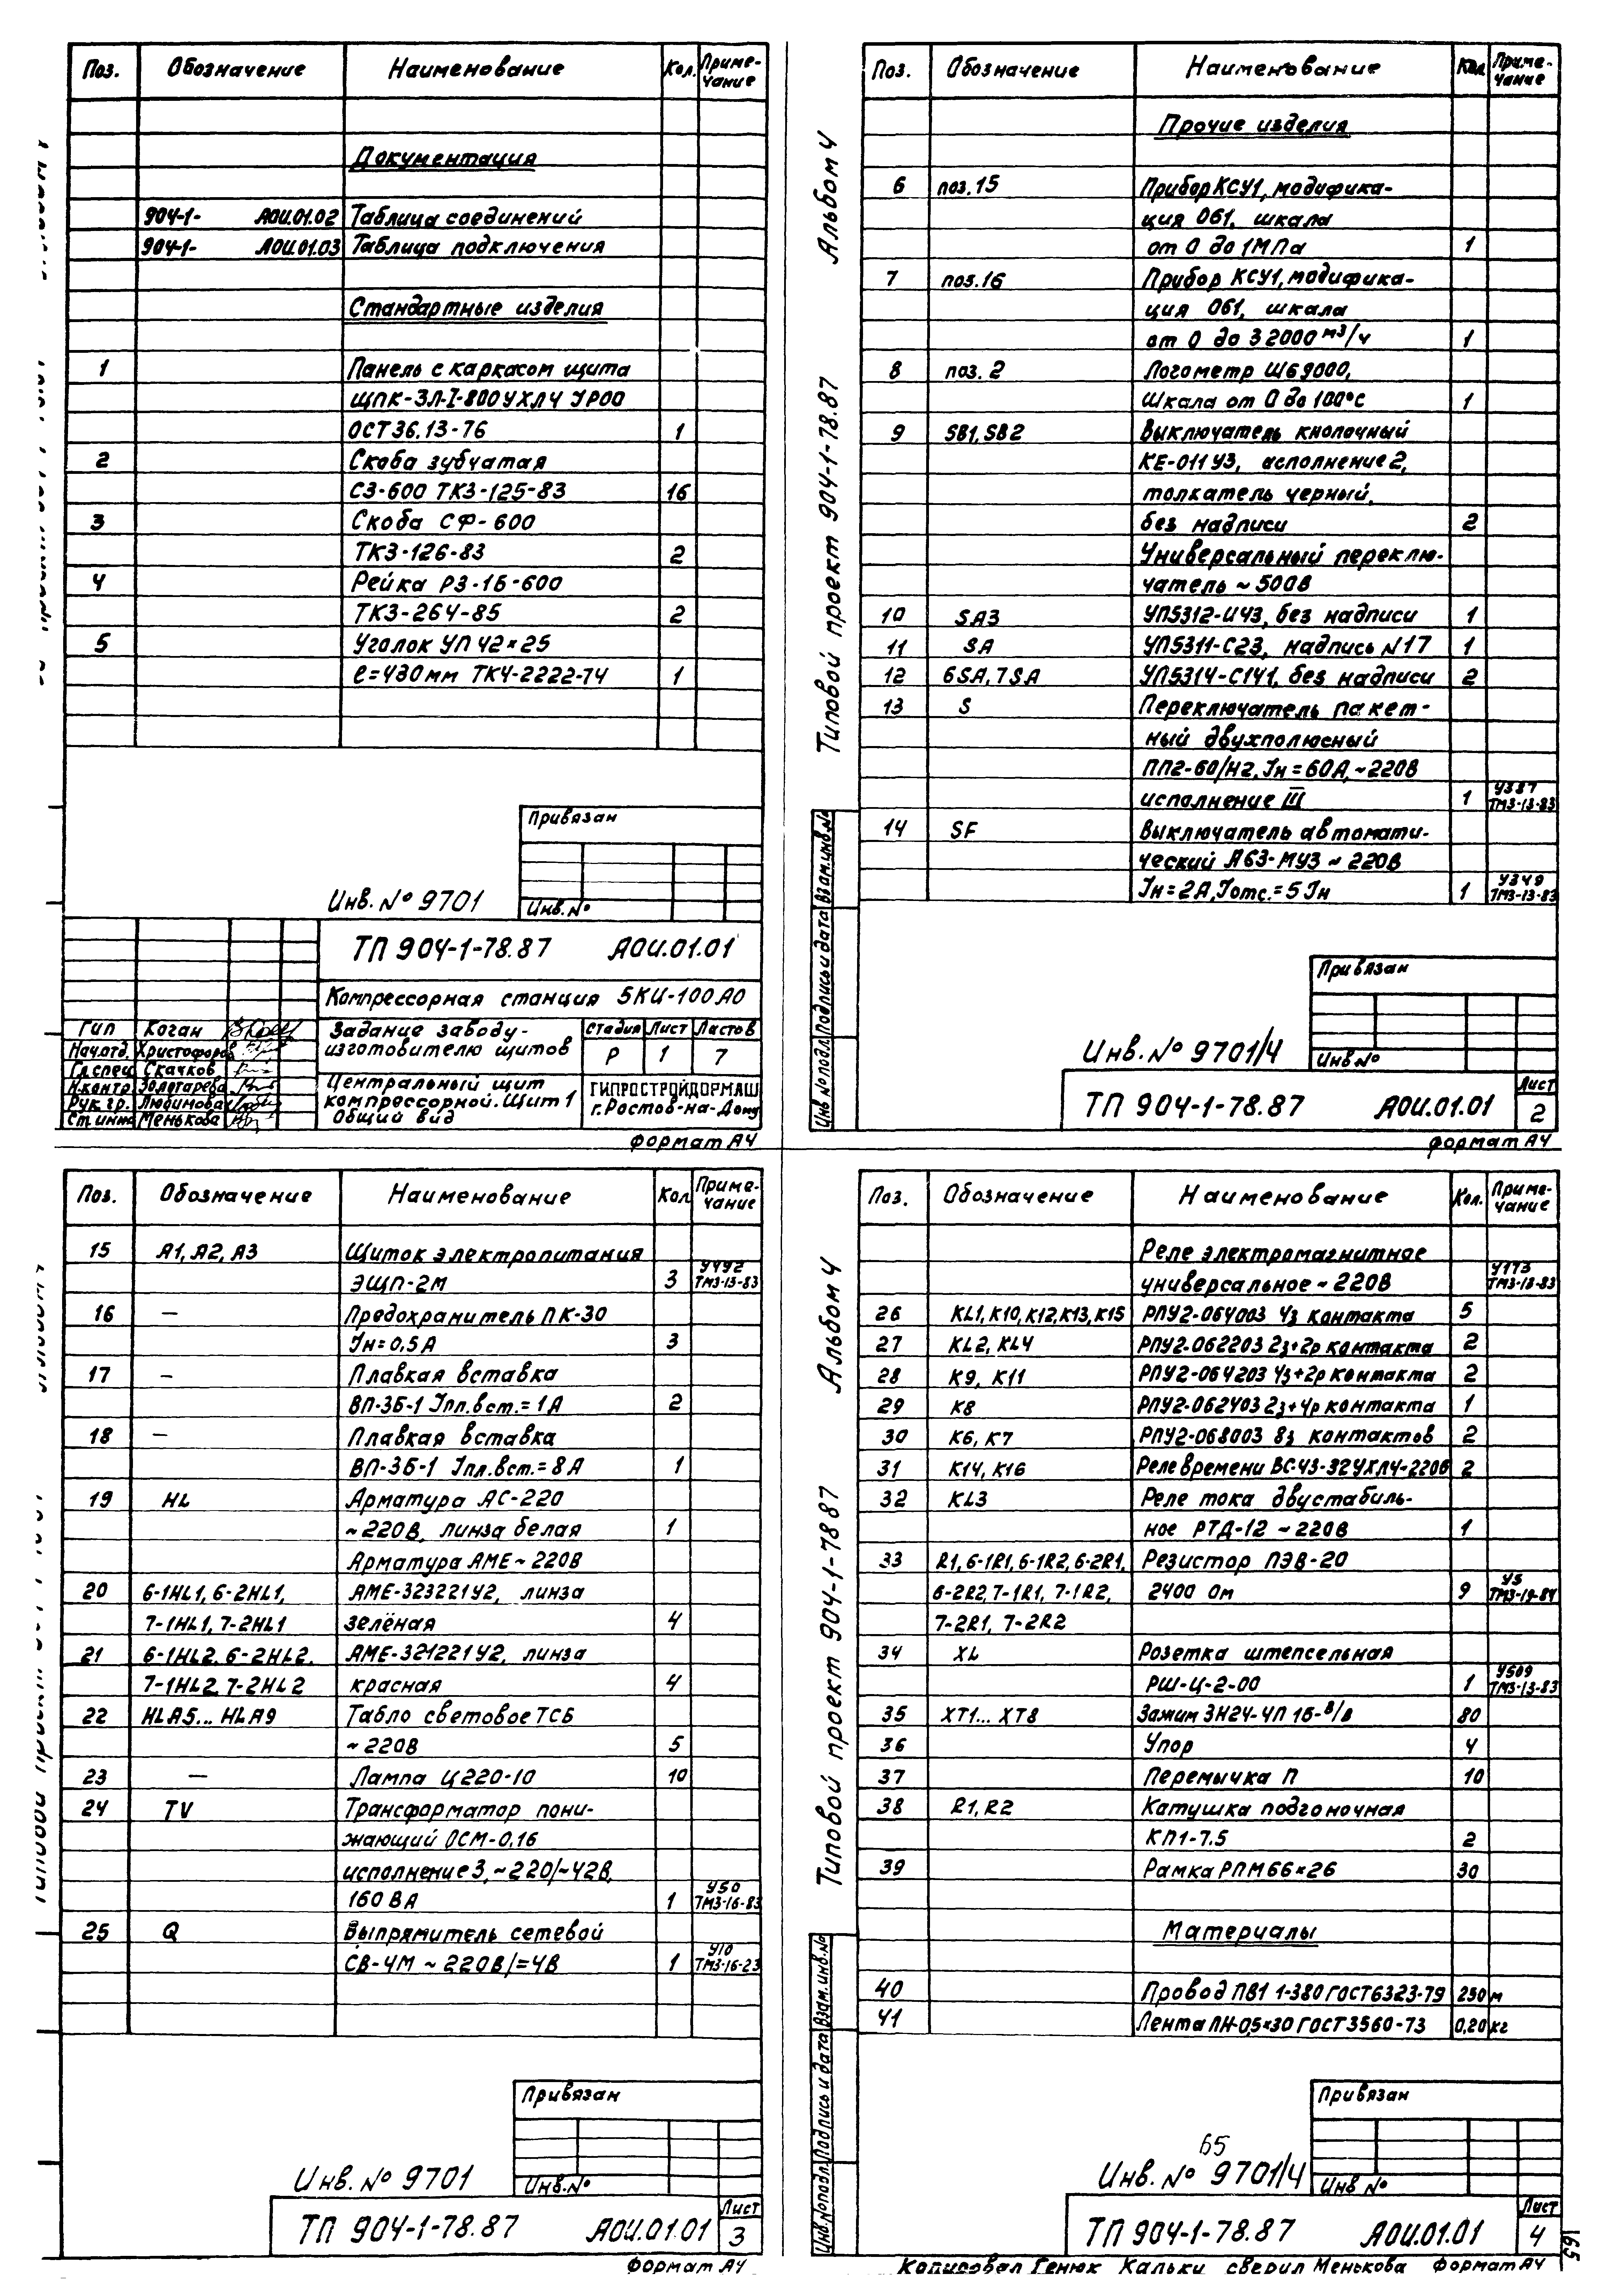 Поз. Обозначение Наименование Кол. Приме-
чание
Документация
904-1- АОИ.01.02 Таблица соединений
904-1- АОИ.01.03 Таблица подключения
Стандартные изделия
1 Панель с каркасом щита
ЩПК-ЗЛ-I-800УХЛ4 УР00
ОСТ 36.13-76 1
2 Скоба зубчатая
СЗ-600 ТКЗ-125-83 16
3 Скоба СФ-600
ТКЗ-126-83 2
4 Рейка РЗ-16-600
ТКЗ-264-85 2
5 Уголок УП 42×25
ℓ=430мм ТК4-2222-74 1
Привязан
Инв. № 9701
Инв.№
ТП 904-1-78.87 АОИ.01.01
Компрессорная станция 5КЦ-100А0
Гип Коган
Нач.отд. Христофоров
Гл.спец Скачков
Н.контр Золотарева
Рук.гр. Любимова
Ст.инж Менькова
Задание заводу-
изготовителю щитов
Стадия Лист Листов
Р 1 7
Центральный щит
компрессорной. Щит 1
Общий вид
ГИПРОСТРОЙДОРМАШ
г.Ростов-на-Дону
Формат А4
Альбом 4
Типовой проект 904-1-78.87
Поз. Обозначение Наименование Кол Приме-
чание
Прочие изделия
6 поз.15 Прибор КСУ1, модифика-
ция 061, шкала
от 0 до 1МПа 1
7 поз.16 Прибор КСУ1, модифика-
ция 061, шкала
от 0 до 32000 м³/ч 1
8 поз. 2 Логометр Ш69000,
шкала от 0 до 100°С 1
9 SB1, SB2 Выключатель кнопочный
КЕ-011У3, исполнение 2,
толкатель черный,
без надписи 2
Универсальный переклю-
чатель ~ 500В
10 SA3 УП5312-И43, без надписи 1
11 SA УП5311-С23, надпись N17 1
12 6SA, 7SA УП5314-С141, без надписи 2
13 S Переключатель пакет-
ный двухполюсный
ПП2-60/Н2, Iн=60А, ~220В
исполнение III 1 У387
ТМ3-13-83
14 SF Выключатель автомати-
ческий А63-МУ3 ~ 220В
Iн=2А, Iотс.=5Iн 1 У349
ТМ3-13-83
Инв № подл. Подпись и дата Взам.инв.№
Привязан
Инв. № 9701/4
Инв №
ТП 904-1-78.87 АОИ.01.01 Лист
2
Формат А4
Поз. Обозначение Наименование Кол Приме-
чание
15 А1, А2, А3 Щиток электропитания
ЭЩП-2М 3 У442
ТМ3-13-83
16 — Предохранитель ПК-30
Iн=0,5А 3
17 — Плавкая вставка
ВП-3Б-1 Iпл.вст.=1А 2
18 — Плавкая вставка
ВП-3Б-1 Iпл.вст.=8А 1
19 HL Арматура АС-220
~220В, линза белая 1
Арматура АМЕ ~ 220В
20 6-1HL1, 6-2HL1, АМЕ-323221У2, линза
7-1HL1, 7-2HL1 зелёная 4
21 6-1HL2, 6-2HL2, АМЕ-321221У2, линза
7-1HL2, 7-2HL2 красная 4
22 HLA5... HLA9 Табло световое ТСБ
~ 220В 5
23 — Лампа Ц220-10 10
24 TV Трансформатор пони-
жающий ОСМ-0,16
исполнение 3, ~220/~42В,
160 ВА 1 У50
ТМ3-16-83
25 Q Выпрямитель сетевой
СВ-4М ~ 220В/=4В 1 У10
ТМ3-16-23
Привязан
Инв. № 9701
Инв.№
ТП 904-1-78.87 АОИ.01.01 Лист
3
Формат А4
Альбом 4
Типовой проект 904-1-7887
Поз. Обозначение Наименование Кол. Приме-
чание
Реле электромагнитное
универсальное ~ 220В У173
ТМ3-13-83
26 KL1, K10, K12, K13, K15 РПУ2-064003 4з контакта 5
27 KL2, KL4 РПУ2-062203 2з+2р контакта 2
28 K9, K11 РПУ2-064203 4з+2р контакта 2
29 K8 РПУ2-062403 2з+4р контакта 1
30 K6, K7 РПУ2-068003 8з контактов 2
31 K14, K16 Реле времени ВС-43-32УХЛ4~220В 2
32 KL3 Реле тока двустабиль-
ное РТД-12 ~ 220В 1
33 R1, 6-1R1, 6-1R2, 6-2R1, Резистор ПЭВ-20
6-2R2, 7-1R1, 7-1R2, 2400 Ом 9 У5
ТМ3-19-84
7-2R1, 7-2R2
34 XL Розетка штепсельная
РШ-Ц-2-00 1 У509
ТМ3-13-83
35 XT1... XT8 Зажим ЗН24-4П 16-В/В 80
36 Упор 4
37 Перемычка П 10
38 R1, R2 Катушка подгоночная
КП1-7.5 2
39 Рамка РПМ 66×26 30
Материалы
40 Провод ПВ1 1-380 ГОСТ6323-79 250 м
41 Лента ЛН-0,5×30 ГОСТ3560-73 0,20 кг
Инв.№подл. Подпись и дата Взам.инв.№
Привязан
65
Инв. № 9701/4
Инв №
ТП 904-1-78.87 АОИ.01.01 Лист
4
165
Копировал Генюк Кальку сверил Менькова Формат А4